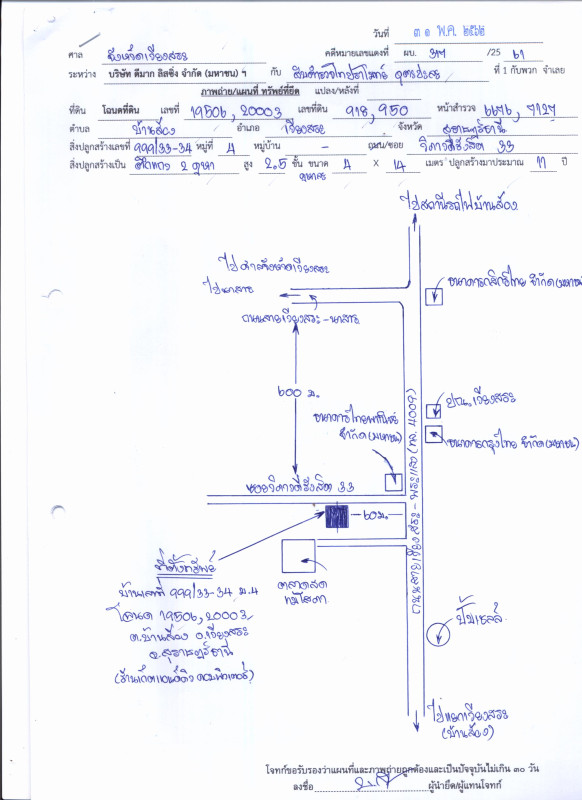 วันที่ ๓๑ พ.ค. ๒๕๖๒
ศาล จังหวัดเวียงสระ คดีหมายเลขแดงที่ ผบ. 317 /25 61
ระหว่าง บริษัท ดีมาก ลิสซิ่ง จำกัด (มหาชน) ฯ กับ ที่ 1 กับพวก จำเลย
ภาพถ่าย/แผนที่ ทรัพย์ที่ยึด แปลง/หลังที่
ที่ดิน โฉนดที่ดิน เลขที่ 19506, 20003 เลขที่ดิน 918, 950 หน้าสำรวจ 6676, 7127
ตำบล บ้านส้อง อำเภอ เวียงสระ จังหวัด สุราษฎร์ธานี
สิ่งปลูกสร้างเลขที่ 999/33-34 หมู่ที่ 4 หมู่บ้าน - ถนน/ซอย วิภาวดีรังสิต 33
สิ่งปลูกสร้างเป็น ตึกแถว 2 คูหา สูง 2.5 ชั้น ขนาด 4 X 14 เมตร ปลูกสร้างมาประมาณ 11 ปี
คูหาละ
ไปสถานีรถไฟบ้านส้อง
ไปศาลจังหวัดเวียงสระ
ไปนาสาร
ธนาคารกสิกรไทย จำกัด(มหาชน)
ถนนสายเวียงสระ-นาสาร
๒๐๐ ม.
ธนาคารไทยพาณิชย์
จำกัด(มหาชน)
ปณ.เวียงสระ
ธนาคารกรุงไทย จำกัด(มหาชน)
ถนนสายเวียงสระ-พระแสง (ทล.4009)
ซอยวิภาวดีรังสิต 33
๖๐ม.
ที่ตั้งทรัพย์
บ้านเลขที่ 999/33-34 ม.4
โฉนด 19506, 20003
ต.บ้านส้อง อ.เวียงสระ
จ.สุราษฎร์ธานี
ตลาดสด
ทวีโสภา
ปั๊มเชลล์
ไปแยกเวียงสระ
(บ้านส้อง)
โจทก์ขอรับรองว่าแผนที่และภาพถ่ายถูกต้องและเป็นปัจจุบันไม่เกิน ๓๐ วัน
ลงชื่อ ผู้นำยึด/ผู้แทนโจทก์